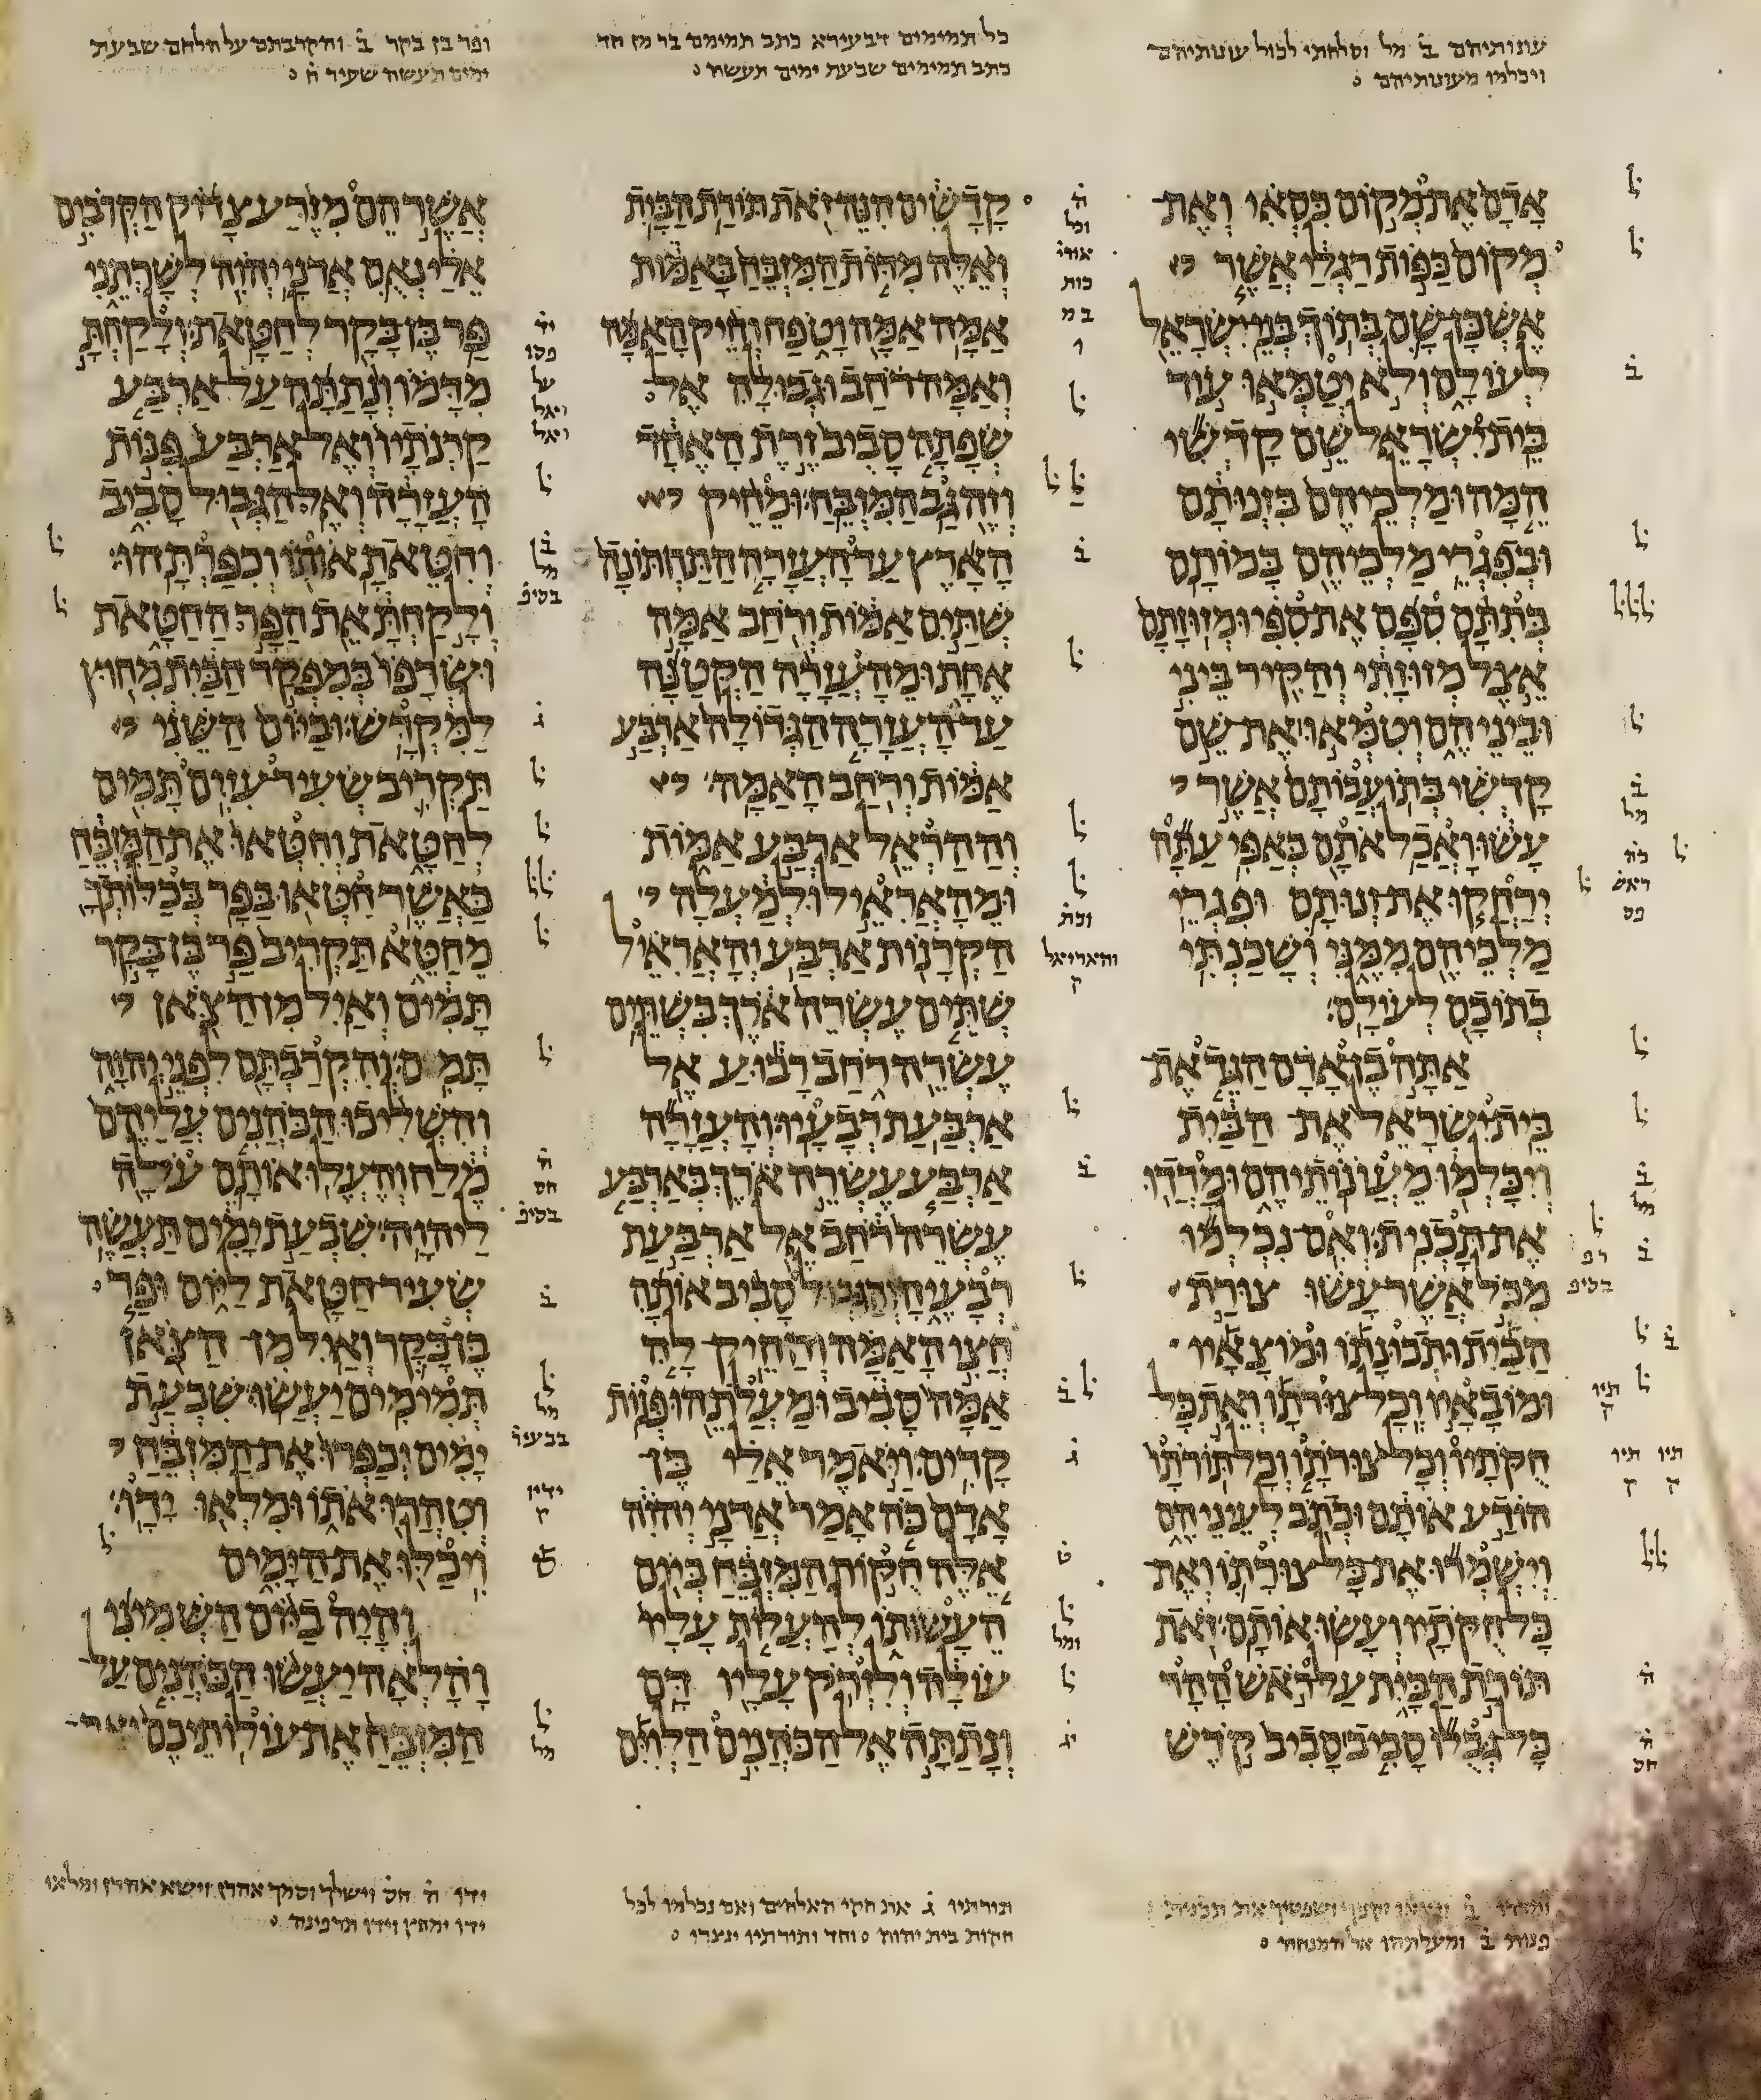 עונותיהם ב מל וסלחתי לכול עונותיהם
ויכלמו מעונותיהם
כל תמימים דבעירא כתב תמימם בר מן חד
כתב תמימים שבעת ימים תעשה
ופר בן בקר ב והקרבתם על הלחם שבעת
ימים תעשה שעיר
אדם את מקום כסאי ואת
מקום כפות רגלי אשר
אשכן שם בתוך בני ישראל
לעולם ולא יטמאו עוד
בית ישראל שם קדשי
המה ומלכיהם בזנותם
ובפגרי מלכיהם במותם
בתתם ספם את ספי ומזוזתם
אצל מזוזתי והקיר ביני
וביניהם וטמאו את שם
קדשי בתועבותם אשר
עשו ואכל אתם באפי עתה
ירחקו את זנותם ופגרי
מלכיהם ממני ושכנתי
בתוכם לעולם׃
אתה בן אדם הגד את
בית ישראל את הבית
ויכלמו מעונותיהם ומדדו
את תכנית׃ ואם נכלמו
מכל אשר עשו צורת
הבית ותכונתו ומוצאיו
ומובאיו וכל צורתו ואת כל
חקתיו וכל צורתו וכל תורתו
הודע אותם וכתב לעיניהם
וישמרו את כל צורתו ואת
כל חקתיו ועשו אותם׃ זאת
תורת הבית על ראש ההר
כל גבלו סביב סביב קדש
קדשים הנה זאת תורת הבית׃
ואלה מדות המזבח באמות
אמה אמה וטפח וחיק האמה
ואמה רחב וגבולה אל
שפתה סביב זרת האחד
וזה גב המזבח׃ ומחיק
הארץ עד העזרה התחתונה
שתים אמות ורחב אמה
אחת ומהעזרה הקטנה
עד העזרה הגדולה ארבע
אמות ורחב האמה׃
וההראל ארבע אמות
ומהאראיל ולמעלה
הקרנות ארבע׃ והאראיל
שתים עשרה ארך בשתים
עשרה רחב רבוע אל
ארבעת רבעיו׃ והעזרה
ארבע עשרה ארך בארבע
עשרה רחב אל ארבעת
רבעיה והגבול סביב אותה
חצי האמה והחיק לה
אמה סביב ומעלתהו פנות
קדים׃ ויאמר אלי בן
אדם כה אמר אדני יהוה
אלה חקות המזבח ביום
העשותו להעלות עליו
עולה ולזרק עליו דם׃
ונתתה אל הכהנים הלוים
אשר הם מזרע צדוק הקרבים
אלי נאם אדני יהוה לשרתני
פר בן בקר לחטאת׃ ולקחת
מדמו ונתתה על ארבע
קרנתיו ואל ארבע פנות
העזרה ואל הגבול סביב
וחטאת אותו וכפרתהו׃
ולקחת את הפר החטאת
ושרפו במפקד הבית מחוץ
למקדש׃ וביום השני
תקריב שעיר עזים תמים
לחטאת וחטאו את המזבח
כאשר חטאו בפר׃ בכלותך
מחטא תקריב פר בן בקר
תמים ואיל מן הצאן
תמים׃ והקרבתם לפני יהוה
והשליכו הכהנים עליהם
מלח והעלו אותם עלה
ליהוה׃ שבעת ימים תעשה
שעיר חטאת ליום ופר
בן בקר ואיל מן הצאן
תמימים יעשו׃ שבעת
ימים יכפרו את המזבח
וטהרו אתו ומלאו ידו׃
ויכלו את הימים
והיה ביום השמיני
והלאה יעשו הכהנים על
המזבח את עולותיכם ואת
ומדדו ב את תכנית
פנות ב ומעלתהו אל המנחה
תורתיו ג את חקי האלהים ואם נכלמו לכל
חקות בית יהוה וחד ותורתיו ינצרו
ידו ח חס וישלך וסמך אהרן וישא אהרן ומלאו
ידו ימחץ וידו תרפינה